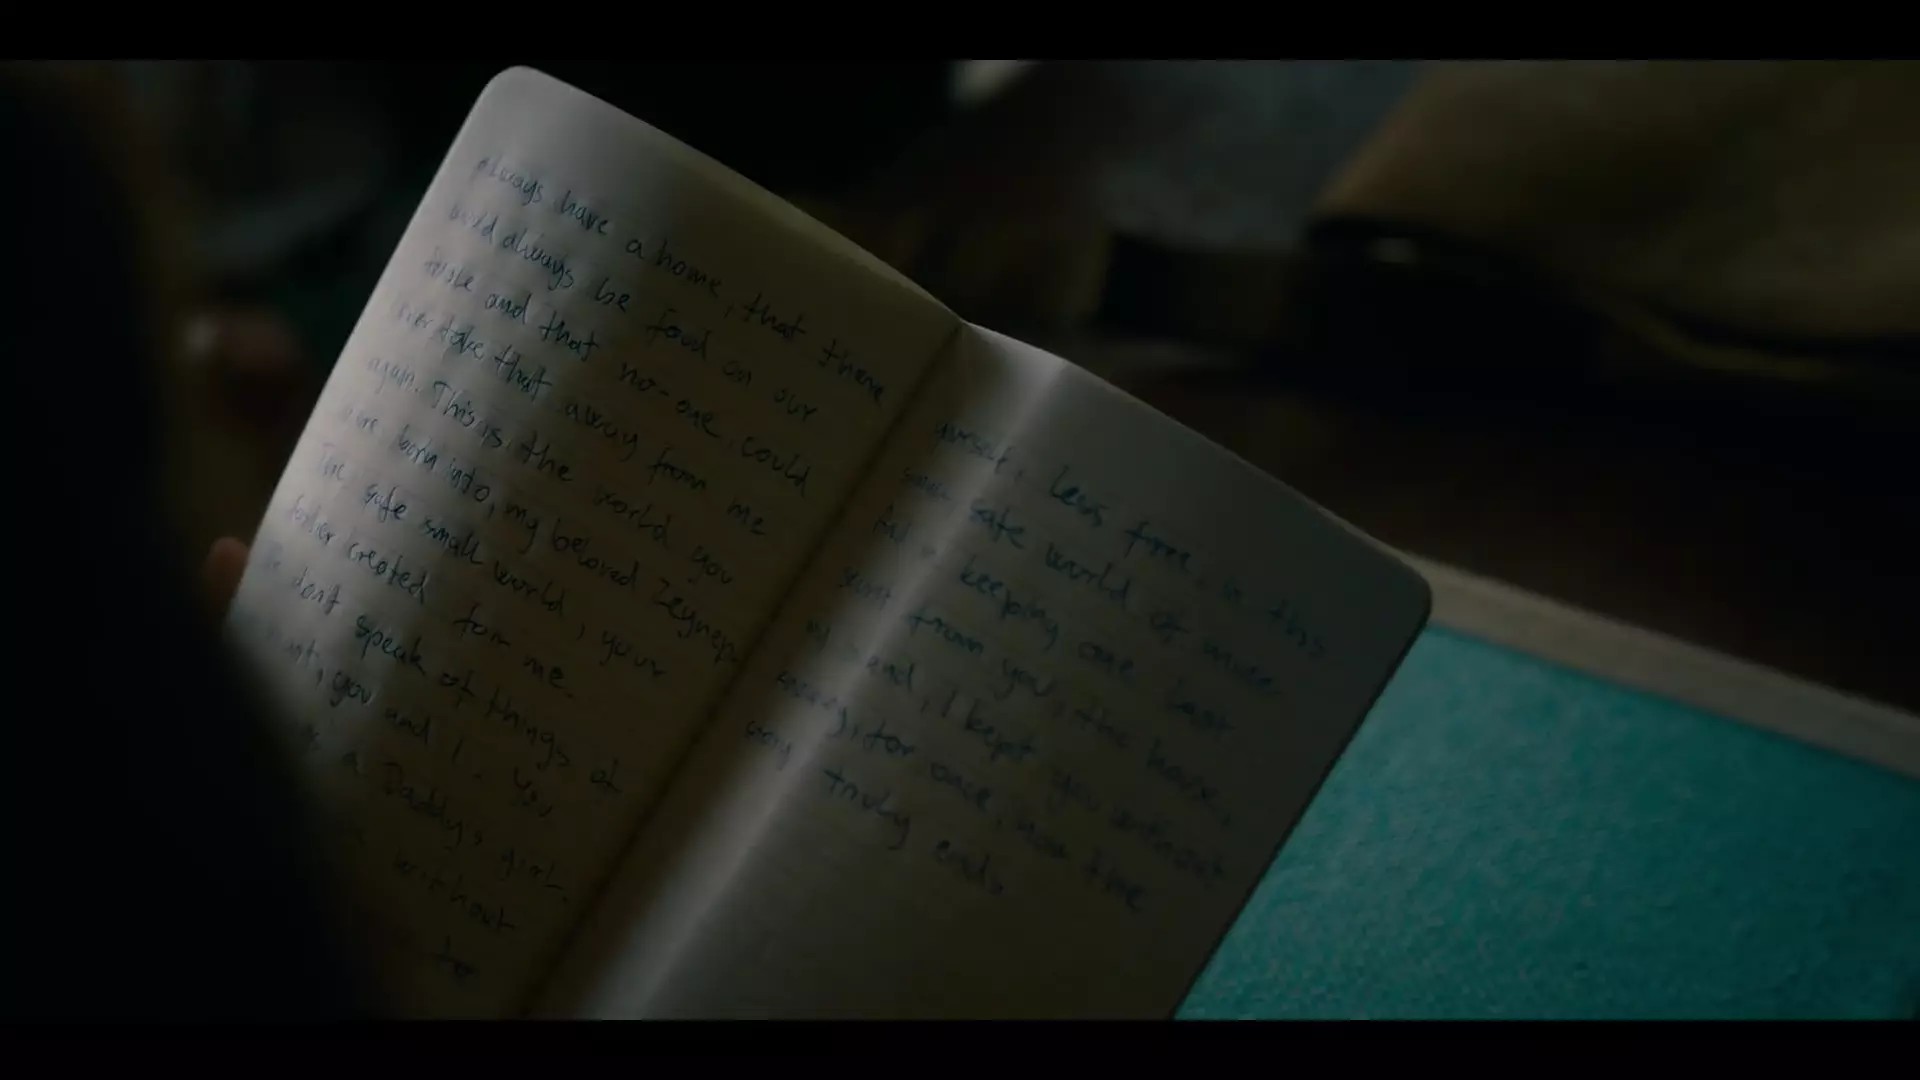 always have a home, that there
would always be food on our
table and that no-one could
ever take that away from me
again. This is the world you
were born into, my beloved Zeynep.
The safe small world, your
father created for me.
We don't speak of things at
you and I. You
a Daddy's girl.
without
to
yourself. Less free, in this
safe world of mine
keeping one last
secret from you, the house,
and, I kept you without
knowing, for once, how the
story truly ends.